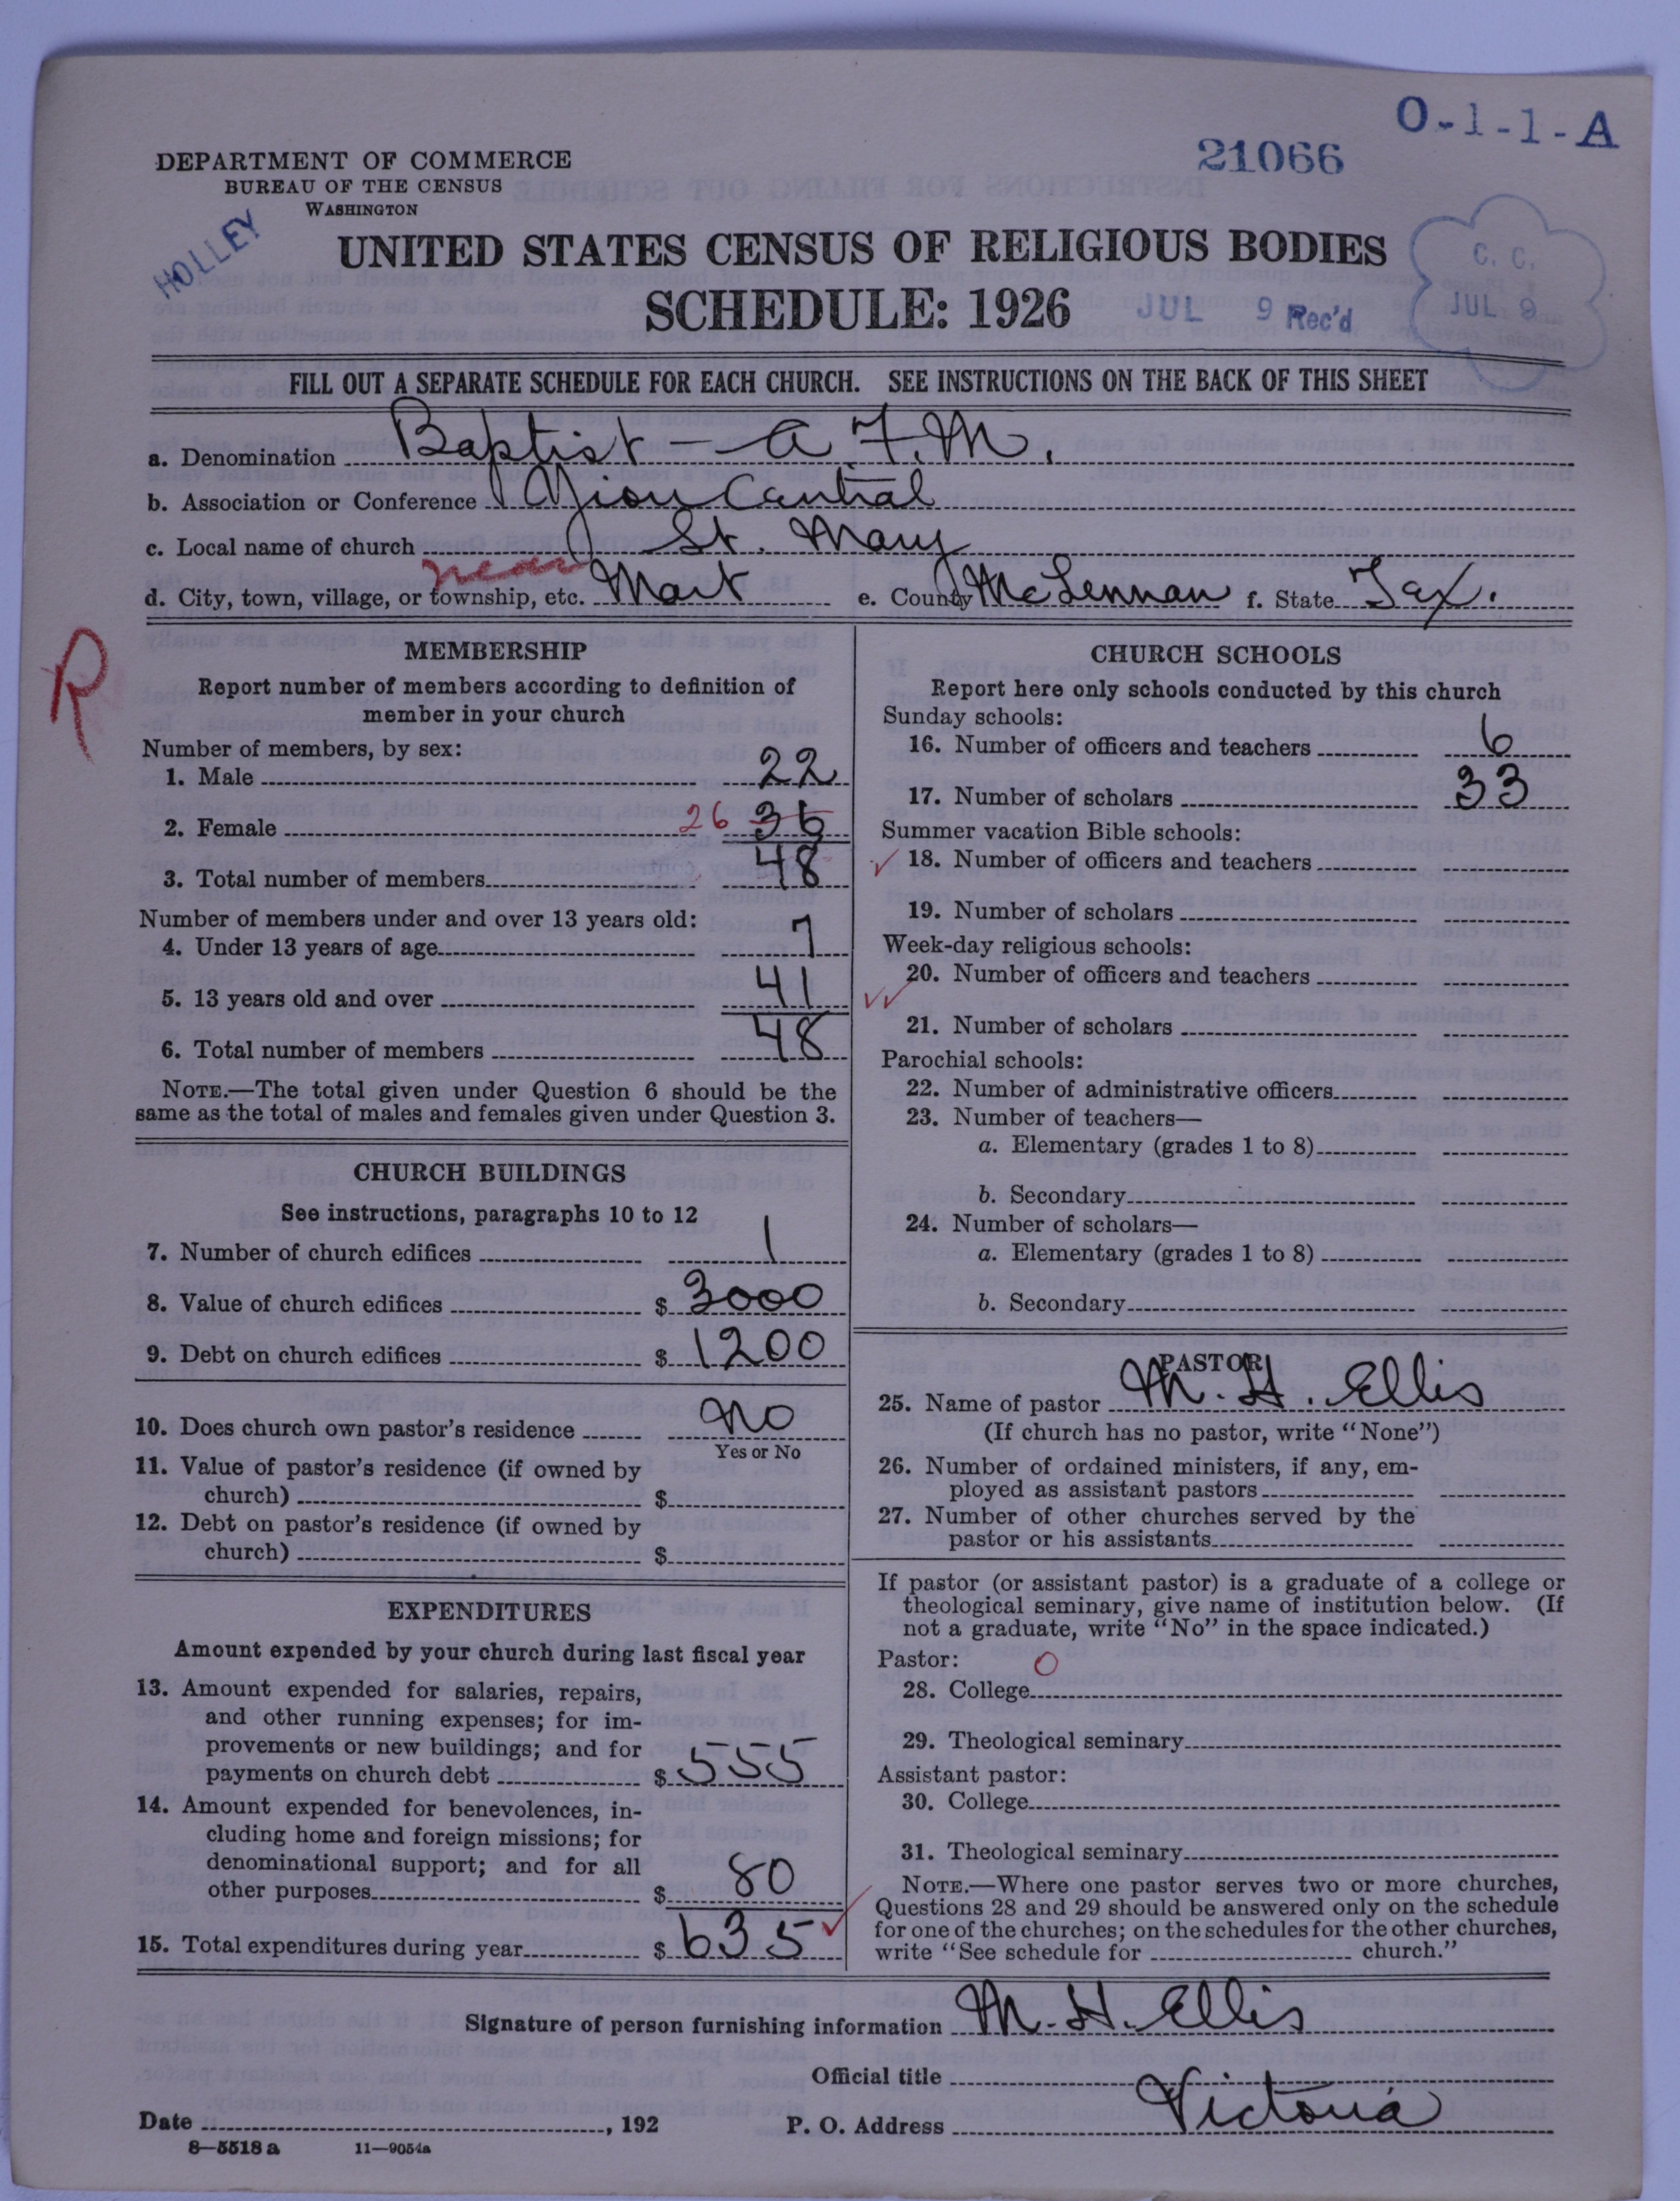 O-1-1-A
21066
DEPARTMENT OF COMMERCE
BUREAU OF THE CENSUS
WASHINGTON
HOLLEY
UNITED STATES CENSUS OF RELIGIOUS BODIES
SCHEDULE: 1926
JUL 9 Rec'd
C. C.
JUL 9
FILL OUT A SEPARATE SCHEDULE FOR EACH CHURCH. SEE INSTRUCTIONS ON THE BACK OF THIS SHEET
a. Denomination Baptist - a. F. M.
b. Association or Conference Zion Cantral
c. Local name of church St. Mary
d. City, town, village, or township, etc. near Mart e. County McLennan f. State Tex.
R
MEMBERSHIP
Report number of members according to definition of
member in your church
Number of members, by sex:
1. Male 22
2. Female 26 36
3. Total number of members 48
Number of members under and over 13 years old:
4. Under 13 years of age 7
5. 13 years old and over 41
6. Total number of members 48
NOTE.—The total given under Question 6 should be the
same as the total of males and females given under Question 3.
CHURCH BUILDINGS
See instructions, paragraphs 10 to 12
7. Number of church edifices 1
8. Value of church edifices $ 3000
9. Debt on church edifices $ 1200
10. Does church own pastor's residence No
Yes or No
11. Value of pastor's residence (if owned by
church) $
12. Debt on pastor's residence (if owned by
church) $
EXPENDITURES
Amount expended by your church during last fiscal year
13. Amount expended for salaries, repairs,
and other running expenses; for im-
provements or new buildings; and for
payments on church debt $ 555
14. Amount expended for benevolences, in-
cluding home and foreign missions; for
denominational support; and for all
other purposes $ 80
15. Total expenditures during year $ 635
CHURCH SCHOOLS
Report here only schools conducted by this church
Sunday schools:
16. Number of officers and teachers 6
17. Number of scholars 33
Summer vacation Bible schools:
18. Number of officers and teachers
19. Number of scholars
Week-day religious schools:
20. Number of officers and teachers
21. Number of scholars
Parochial schools:
22. Number of administrative officers
23. Number of teachers—
a. Elementary (grades 1 to 8)
b. Secondary
24. Number of scholars—
a. Elementary (grades 1 to 8)
b. Secondary
PASTOR
25. Name of pastor M. H. Ellis
(If church has no pastor, write "None")
26. Number of ordained ministers, if any, em-
ployed as assistant pastors
27. Number of other churches served by the
pastor or his assistants
If pastor (or assistant pastor) is a graduate of a college or
theological seminary, give name of institution below. (If
not a graduate, write "No" in the space indicated.)
Pastor: O
28. College
29. Theological seminary
Assistant pastor:
30. College
31. Theological seminary
NOTE.—Where one pastor serves two or more churches,
Questions 28 and 29 should be answered only on the schedule
for one of the churches; on the schedules for the other churches,
write "See schedule for church."
Signature of person furnishing information M. H. Ellis
Official title
Date , 192 P. O. Address Victoria
8—5518 a 11—9054a